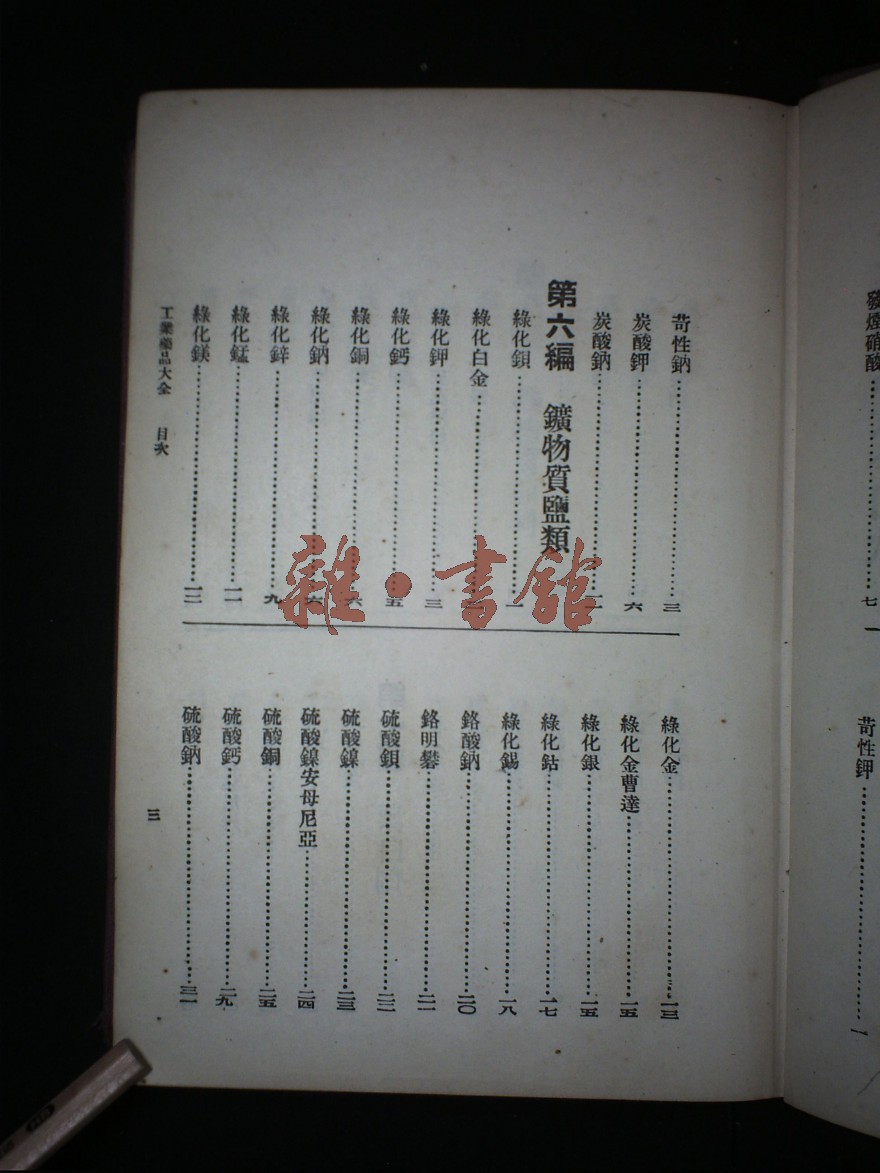 發煙硝酸……七
苛性鉀……一
苛性鈉……三
炭酸鉀……六
炭酸鈉……
第六編　鑛物質鹽類
綠化鋇……一
綠化白金……
綠化鉀……三
綠化鈣……五
綠化銅……六
綠化鈉……六
綠化鋅……九
綠化錳……一一
綠化鎂……一二
綠化金……一三
綠化金曹達……一五
綠化銀……一五
綠化鈷……一七
綠化錫……一八
鉻酸鈉……二〇
鉻明礬……二一
硫酸鋇……二二
硫酸鎳……二三
硫酸鎳安母尼亞……二四
硫酸銅……二五
硫酸鈣……二九
硫酸鈉……三一
工業藥品大全　目次
三
雜·書館
HB